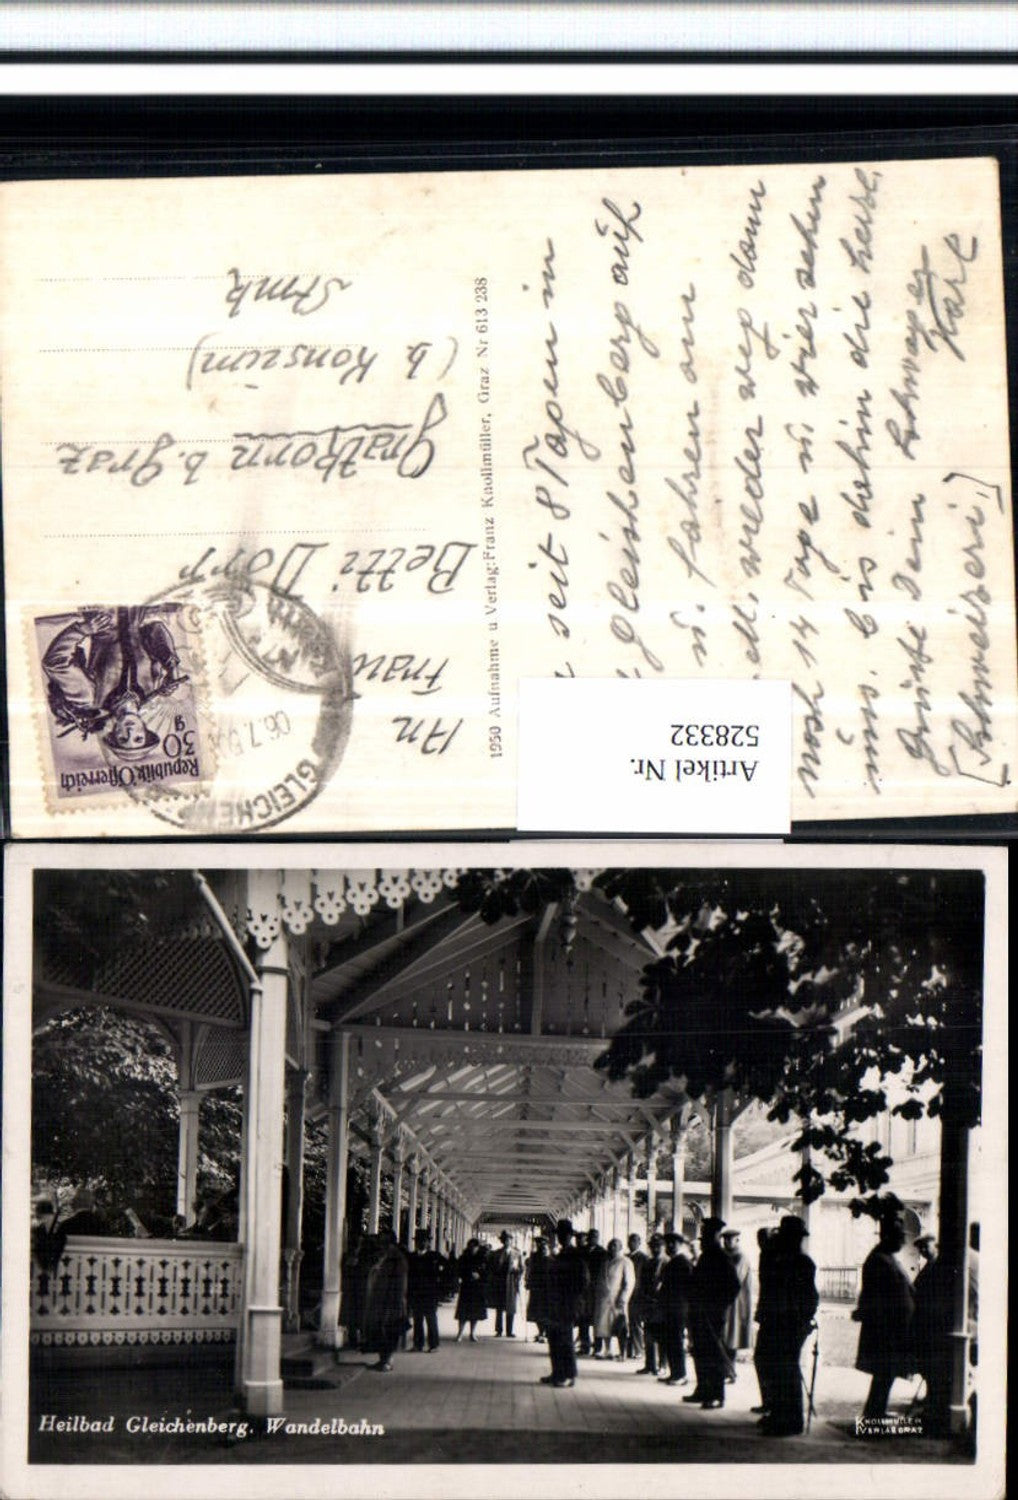 [Schweizeri.]
seit 8 Tagen in
Gleichenberg auf
u. fahren am
M. wieder weg dann
noch 14 Tage u. wir sehen
uns. bis dahin die herzl.
Grüße Dein Schwager
Karl
1950 Aufnahme u Verlag: Franz Knollmüller, Graz Nr 613 238
An
Frau
Betti Dorr
Gratkorn b. Graz
(b. Konsum)
Stmk
30
g
Republik Österreich
GLEICHEN
06.7.5
Artikel Nr.
528332
Heilbad Gleichenberg, Wandelbahn
KNOLLMÜLLER
VERLAG GRAZ